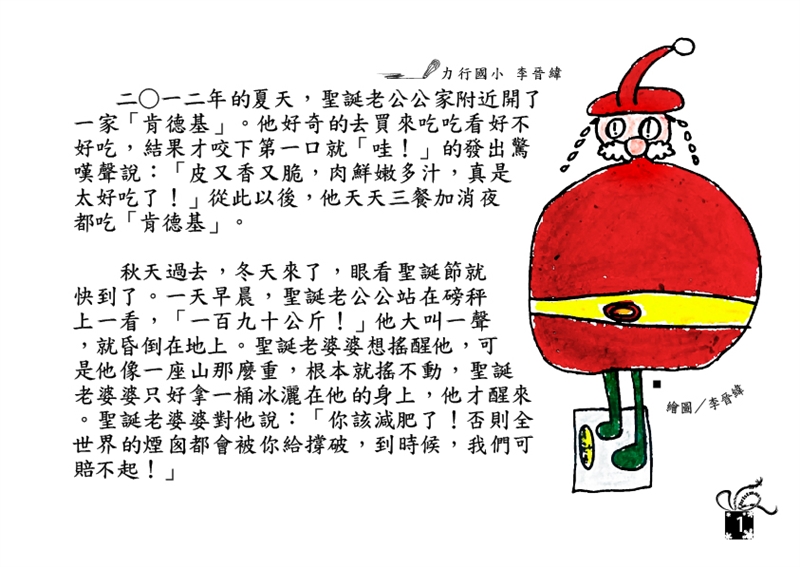 力行國小 李晉緯
二〇一二年的夏天，聖誕老公公家附近開了
一家「肯德基」。他好奇的去買來吃吃看好不
好吃，結果才咬下第一口就「哇！」的發出驚
嘆聲說：「皮又香又脆，肉鮮嫩多汁，真是
太好吃了！」從此以後，他天天三餐加消夜
都吃「肯德基」。
秋天過去，冬天來了，眼看聖誕節就
快到了。一天早晨，聖誕老公公站在磅秤
上一看，「一百九十公斤！」他大叫一聲
，就昏倒在地上。聖誕老婆婆想搖醒他，可
是他像一座山那麼重，根本就搖不動，聖誕
老婆婆只好拿一桶冰灑在他的身上，他才醒來
。聖誕老婆婆對他說：「你該減肥了！否則全
世界的煙囪都會被你給撐破，到時候，我們可
賠不起！」
繪圖／李晉緯
1